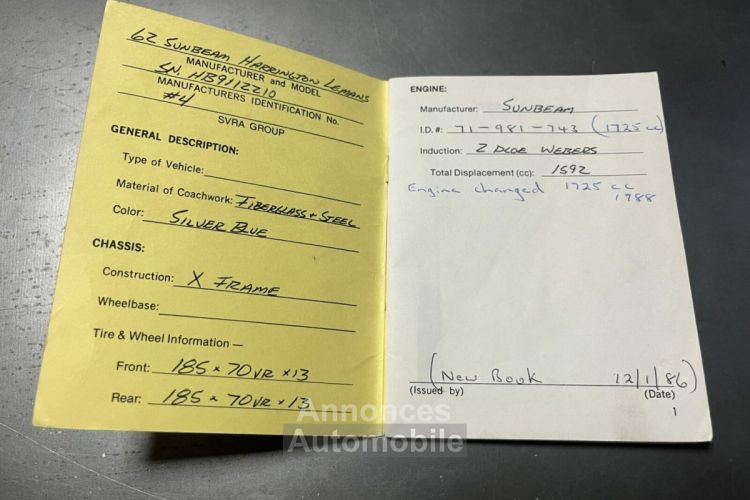 62 SUNBEAM HARRINGTON LEMANS
MANUFACTURER and MODEL
SN. HB9112210
MANUFACTURERS IDENTIFICATION No.
#4
SVRA GROUP
GENERAL DESCRIPTION:
Type of Vehicle:
Material of Coachwork: FIBERGLASS + STEEL
Color: SILVER BLUE
CHASSIS:
Construction: X FRAME
Wheelbase:
Tire & Wheel Information —
Front: 185 x 70 VR x 13
Rear: 185 x 70 VR x 13
ENGINE:
Manufacturer: SUNBEAM
I.D. #: 71-981-743 (1725 cc)
Induction: 2 DCOE WEBERS
Total Displacement (cc): 1592
Engine changed 1725 cc
1988
(New Book 12/1/86)
(Issued by) (Date)
1
Annonces
Automobile